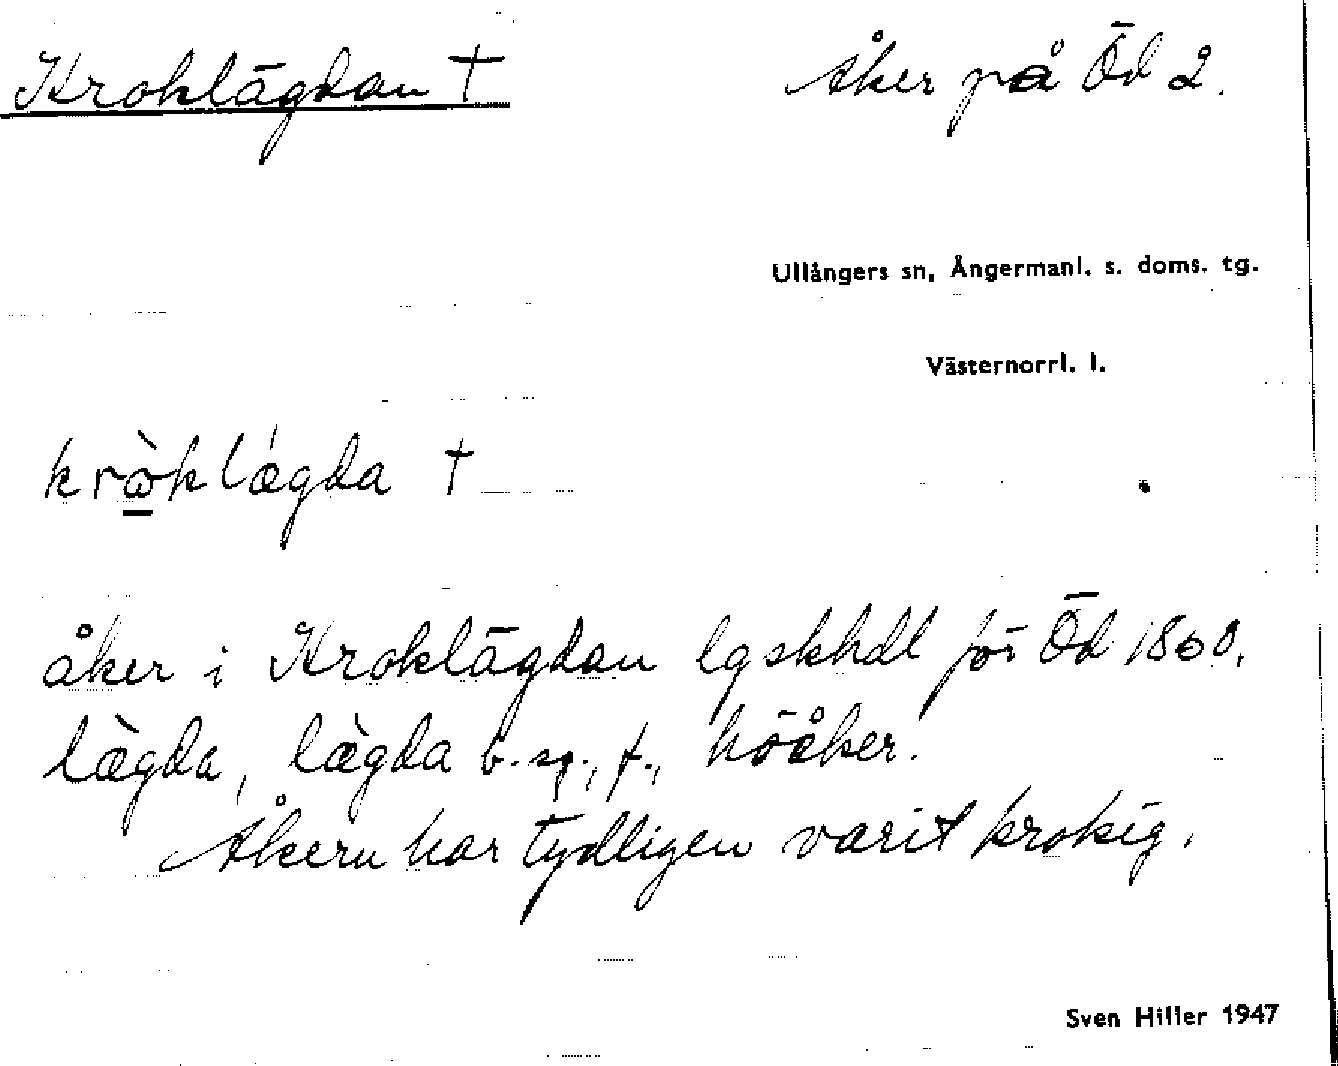 Kroklägdan †
Åker på Öd 2.
Ullångers sn, Ångermanl. s. doms. tg.
Västernorrl. l.
krὼklǽgda †
åker i Kroklägdan lgskhdl för Öd 1860.
læ̀gda, læ̀gda b. sg., f., höåker.
Åkern har tydligen varit krokig.
Sven Hiller 1947